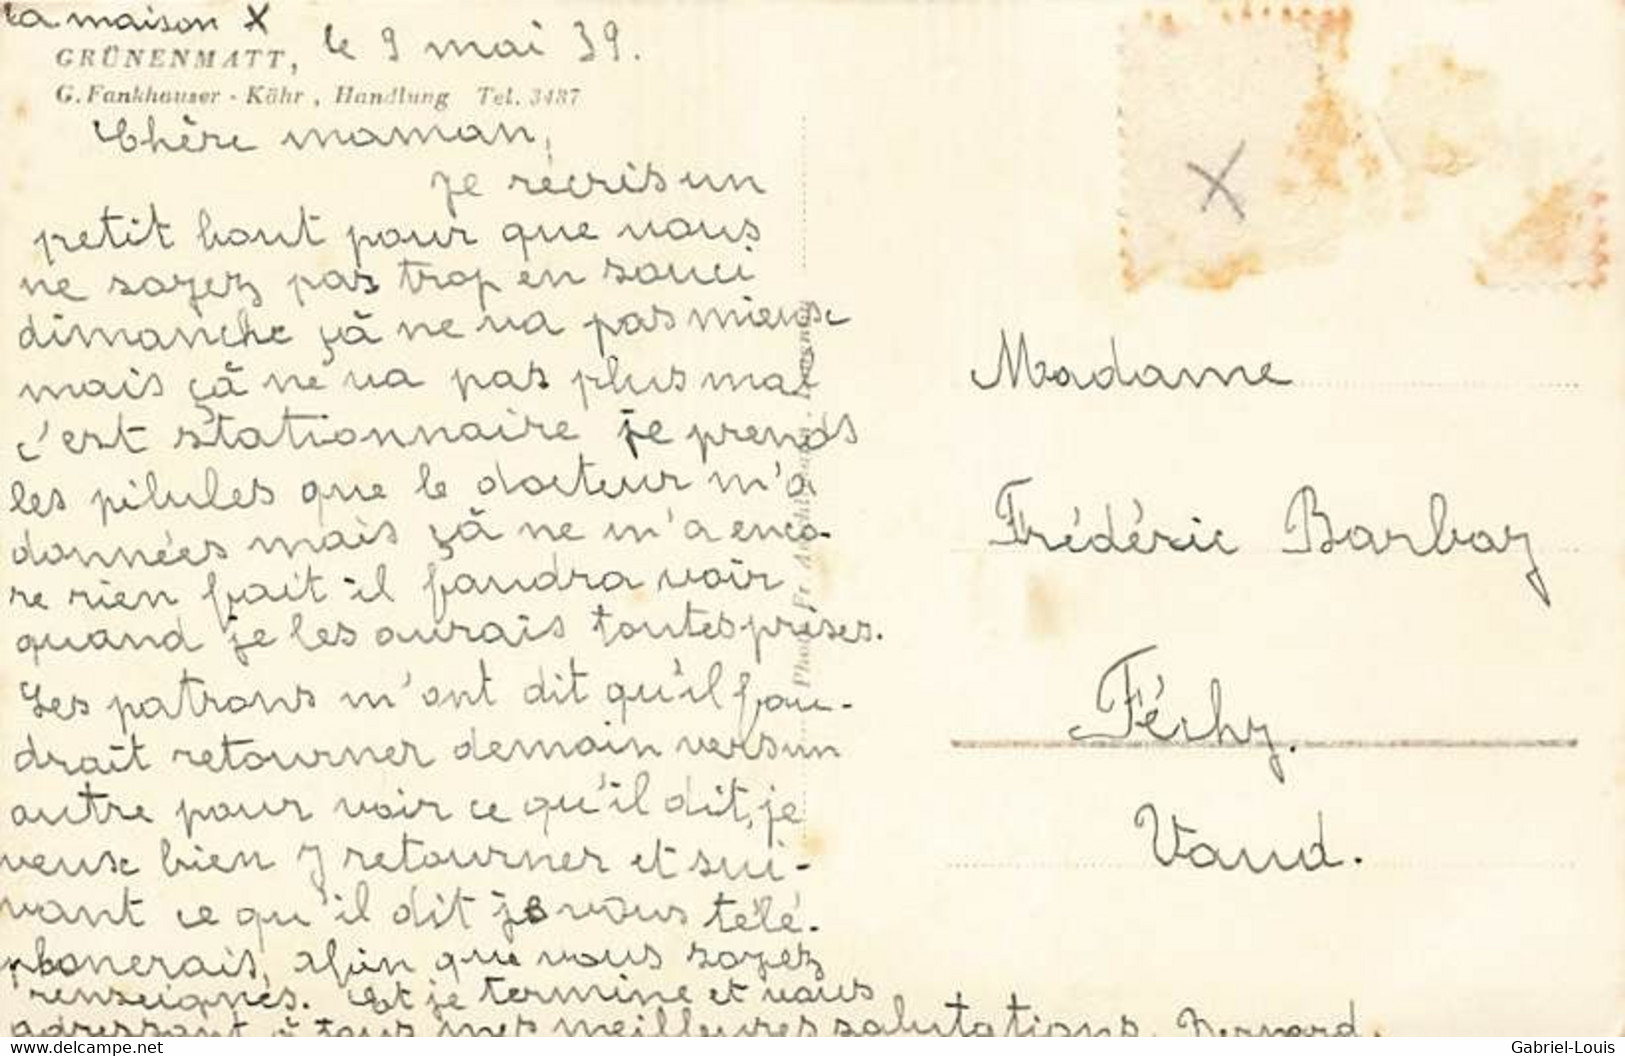 la maison X
GRÜNENMATT, le 9 mai 39.
G. Fankhauser - Kähr, Handlung Tel. 3487
Chère maman,
je récris un
petit bout pour que vous
ne soyez pas trop en souci
dimanche çà ne va pas mieux
mais çà ne va pas plus mal
c'est stationnaire je prends
les pilules que le docteur m'a
données mais çà ne m'a enco-
re rien fait il faudra voir
quand je les aurais toutes prises.
Les patrons m'ont dit qu'il fau-
drait retourner demain vers un
autre pour voir ce qu'il dit, je
veux bien y retourner et sui-
vant ce qu'il dit je vous télé-
phonerais, afin que vous soyez
renseignés. Et je termine et vous
adressant à tous mes meilleures salutations. Bernard.
X
Madame
Frédéric Barbay
Féchy.
Vaud.
Gabriel-Louis
www.delcampe.net